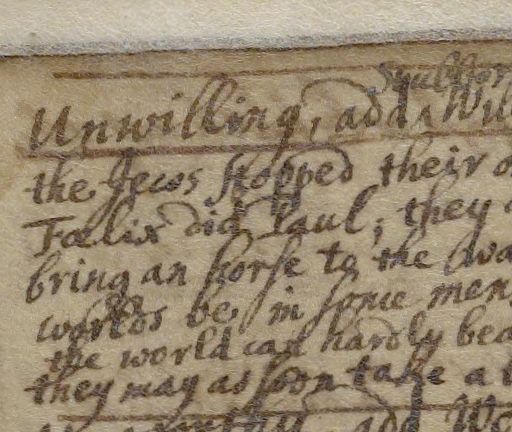 Stubborn
Unwilling, add ^ Wil
the Jews stopped their
Fœlix did Paul; they
bring an horse to the wa
words be in some mens
the world can hardly bea
they may as soon take a
add Wo